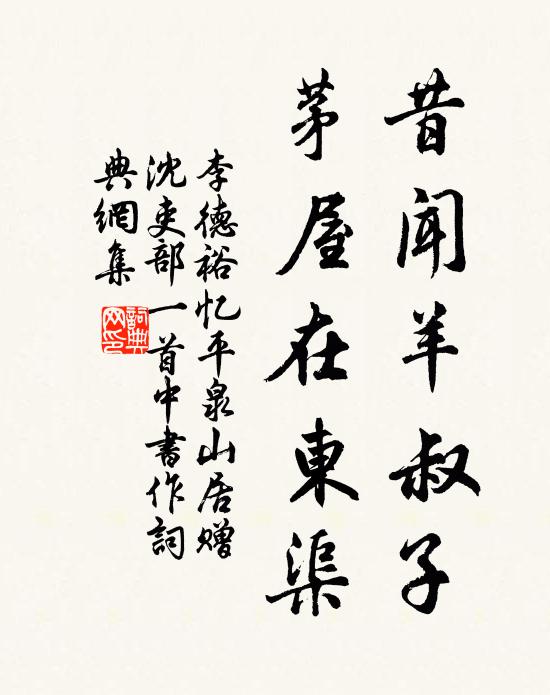 昔聞羊叔子
茅屋在東渠
李德裕忆平泉山居赠
沈吏部一首中書作詞
典網集
詞典网印